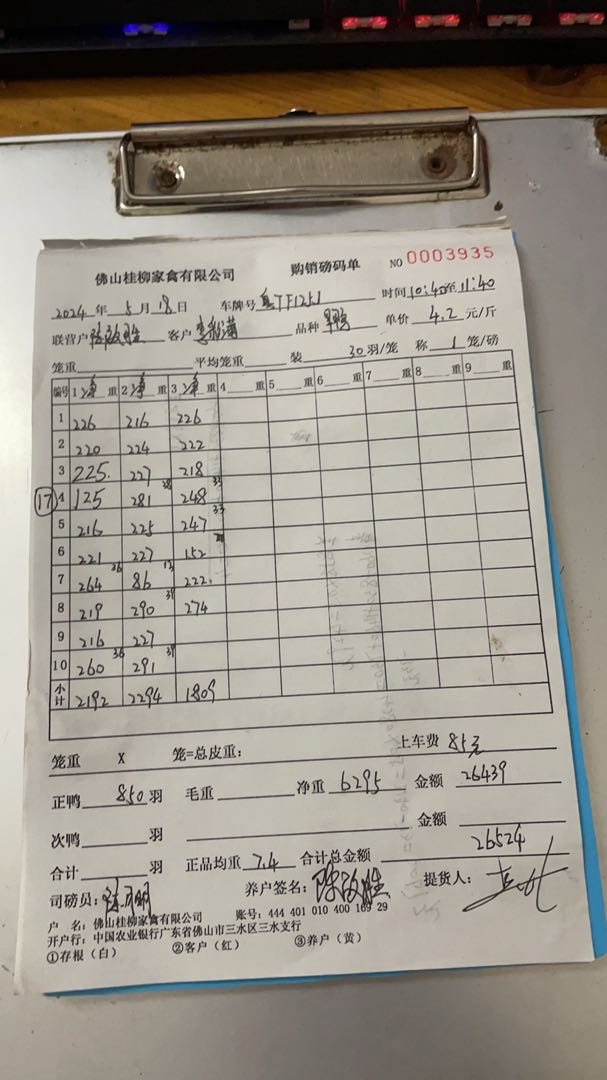 佛山桂柳家禽有限公司 购销磅码单 NO 0003935
2024 年 5 月 18 日 车牌号 粤TF1251 时间 10:45 至 11:40
联营户 客户 品种 单价 4.2 元/斤
笼重 平均笼重 装 30 羽/笼 称 1 笼/磅
编号 1 净 重 2 净 重 3 净 重 4 重 5 重 6 重 7 重 8 重 9 重
1 226 216 226
2 220 224 222
3 225. 227 218
17 4 125 281 38 248 33
5 216 225 247 33
6 221 227 152
7 264 36 86 12 222.
8 219 290 39 274
9 216 227
10 260 36 291 39
小计 2192 2294 1809
笼重 X 笼=总皮重: 上车费 85元
正鸭 850 羽 毛重 净重 6295 金额 26439
次鸭 羽 金额
合计 羽 正品均重 7.4 合计总金额 26524
司磅员: 养户签名: 提货人:
户 名: 佛山桂柳家禽有限公司 账号: 444 401 010 400 169 29
开户行: 中国农业银行广东省佛山市三水区三水支行
①存根（白） ②客户（红） ③养户（黄）